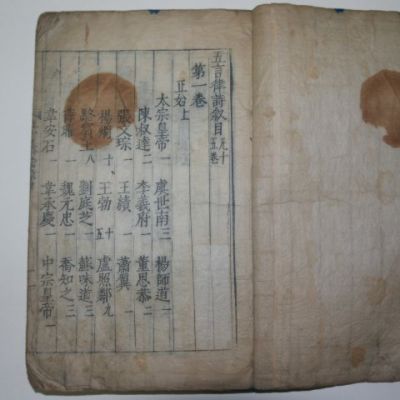 五言律詩叙目 凡十五卷
第一卷
正始上
太宗皇帝一 虞世南三 楊師道一
陳叔達二 李義府一 董思恭二
張文琮一 王績一 蕭翼一
楊炯十 王勃 盧照鄰九
駱賓王 劉庭芝一 蘇味道三
魏元忠一 喬知之三
韋安石一 韋承慶一 中宗皇帝一